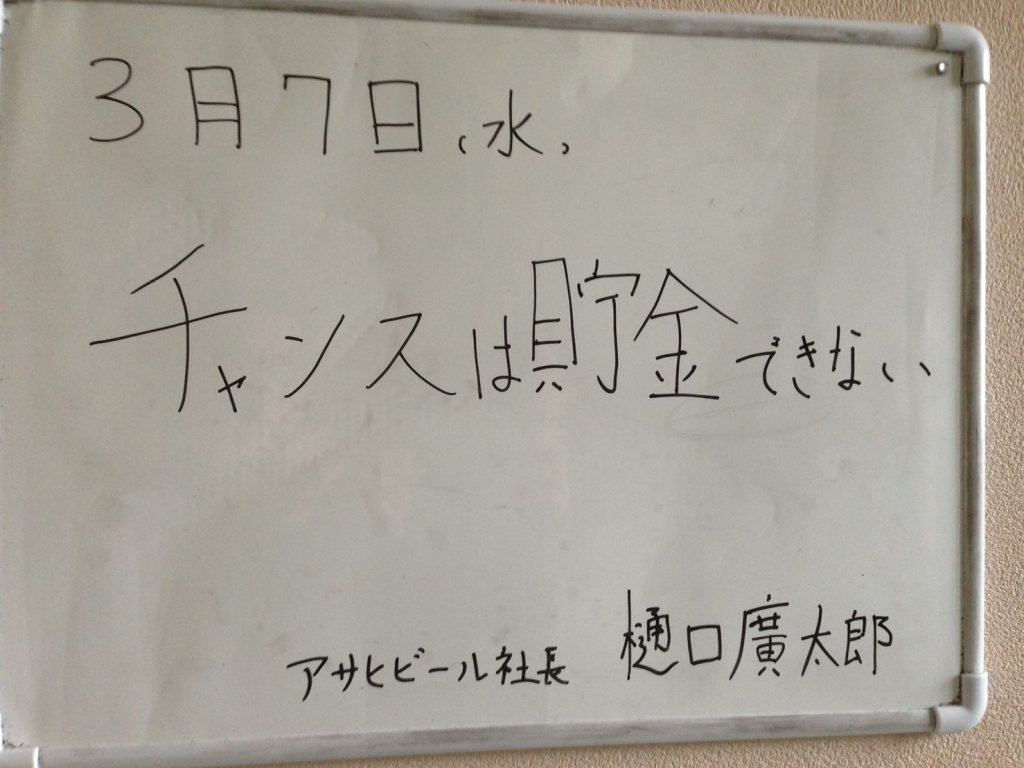 3月7日(水)
チャンスは貯金できない
アサヒビール社長 樋口廣太郎